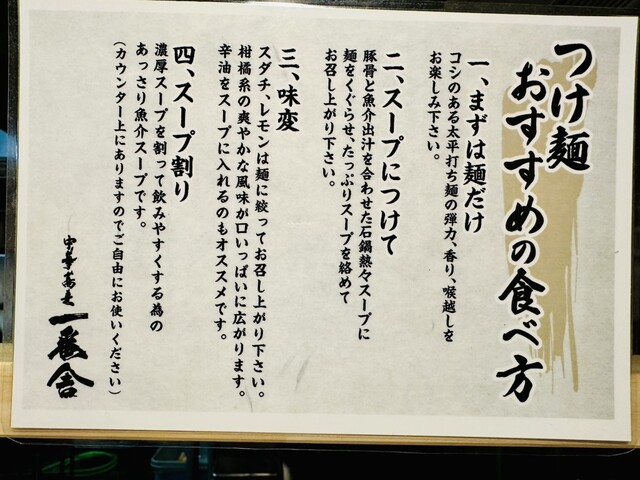 つけ麺
おすすめの食べ方
一、まずは麺だけ
コシのある太平打ち麺の弾力、香り、喉越しを
お楽しみ下さい。
二、スープにつけて
豚骨と魚介出汁を合わせた石鍋熱々スープに
麺をくぐらせ、たっぷりスープを絡めて
お召し上がり下さい。
三、味変
スダチ、レモンは麺に絞ってお召し上がり下さい。
柑橘系の爽やかな風味が口いっぱいに広がります。
辛油をスープに入れるのもオススメです。
四、スープ割り
濃厚スープを割って飲みやすくする為の
あっさり魚介スープです。
（カウンター上にありますのでご自由にお使いください）
中華蕎麦 一番舎